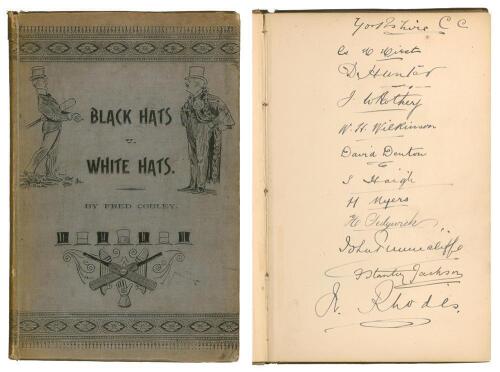 BLACK HATS
v.
WHITE HATS.
BY FRED COBLEY.
Yorkshire C C
G H Hirst
D Hunter
J W Rothery
W. H. Wilkinson
David Denton
S Haigh
H Myers
H. Sedgwick
John Tunnicliffe
F Stanley Jackson
W. Rhodes.